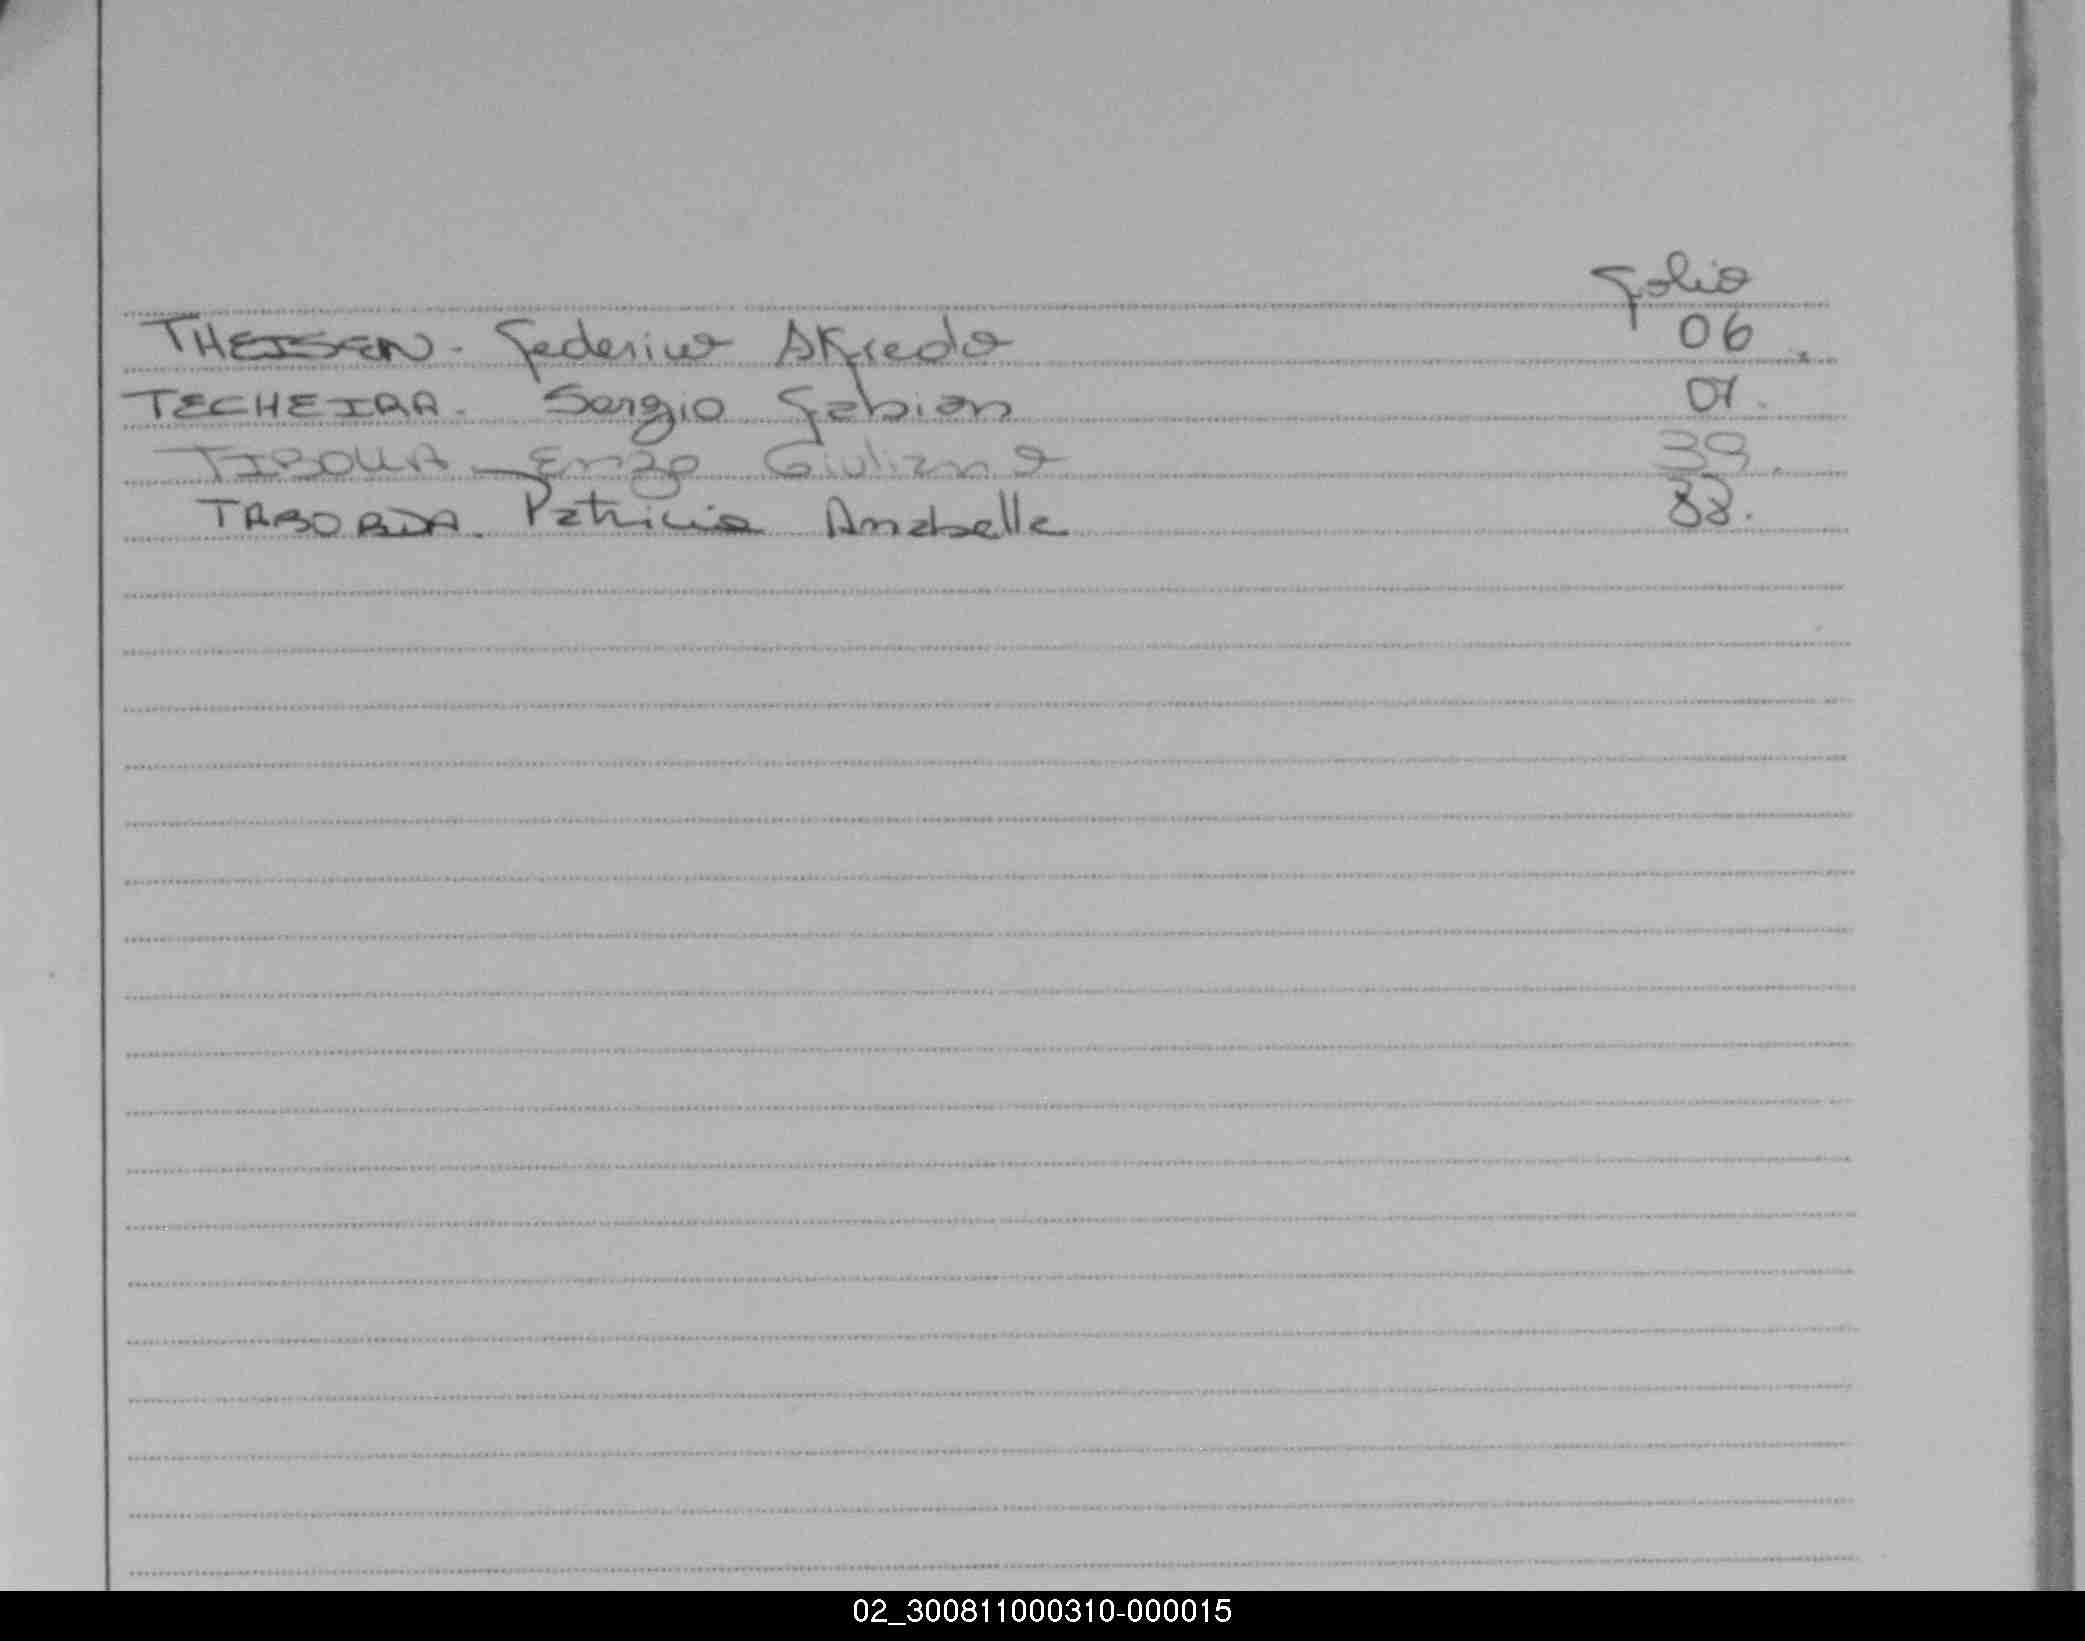 Folio
THEISSEN - Federico Alfredo 06.
TECHEIRA - Sergio Fabian 07.
TIBOLLA - Enzo Giuliano 39.
TABORDA. Patricia Anabella 88.
02_300811000310-000015